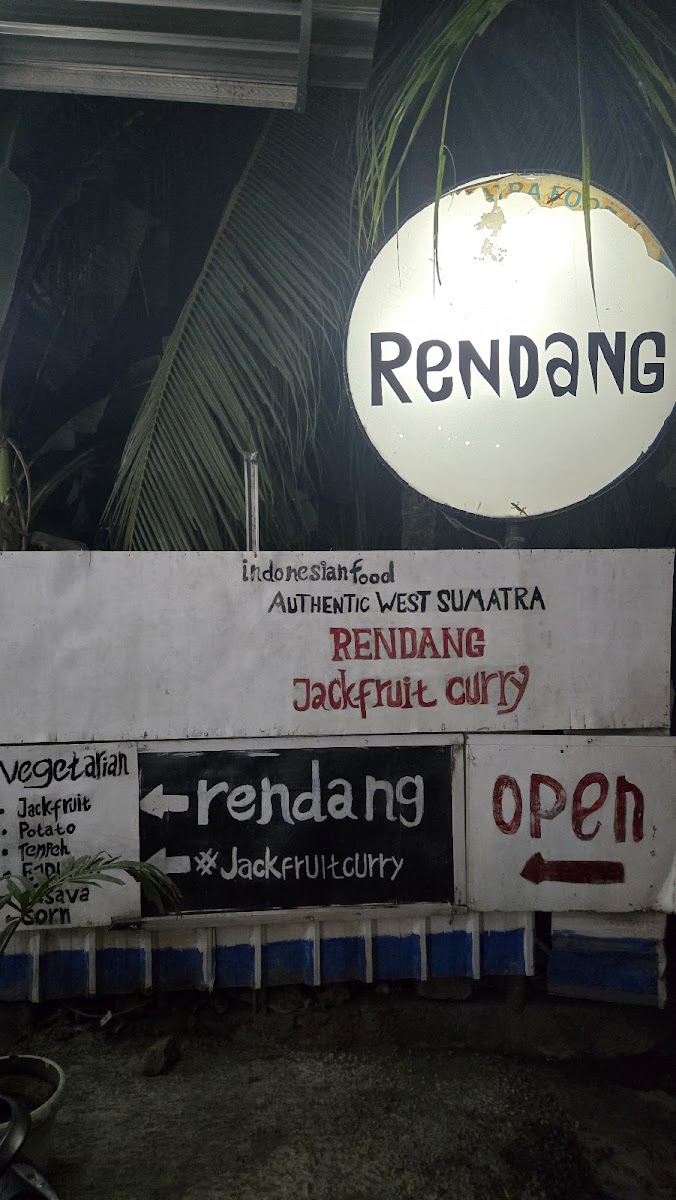 RENDANG
indonesian food
AUTHENTIC WEST SUMATRA
RENDANG
Jackfruit curry
vegetarian
• Jackfruit
• Potato
• Tempeh
corn
rendang
#Jackfruitcurry
open